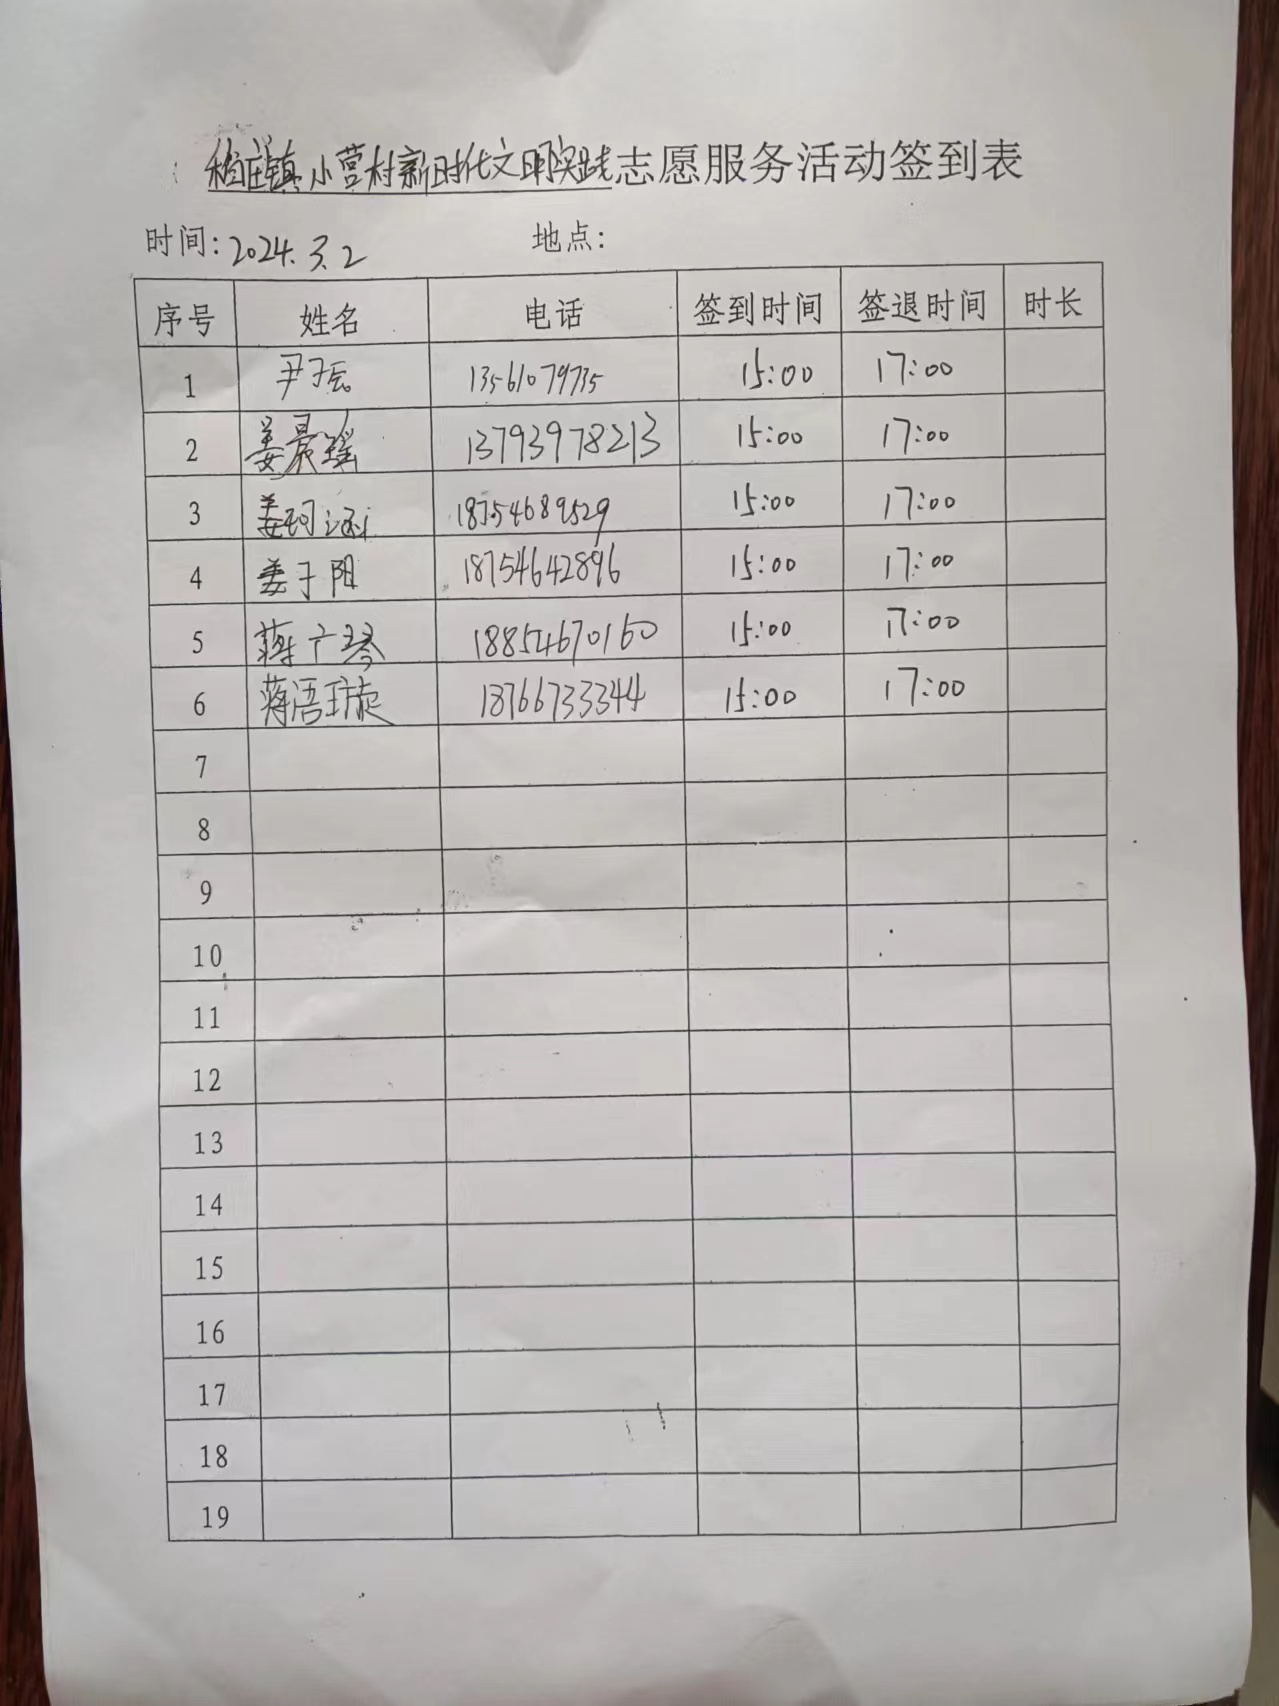 稻庄镇小营村新时代文明实践志愿服务活动签到表
时间: 2024.3.2 地点:
序号 姓名 电话 签到时间 签退时间 时长
1 尹子辰 13561079735 15:00 17:00
2 姜晨瑶 13793978213 15:00 17:00
3 姜珂涵 18754689529 15:00 17:00
4 姜于阳 18754642896 15:00 17:00
5 蒋广琴 18854670160 15:00 17:00
6 蒋浯璇 18766733344 15:00 17:00
7
8
9
10
11
12
13
14
15
16
17
18
19